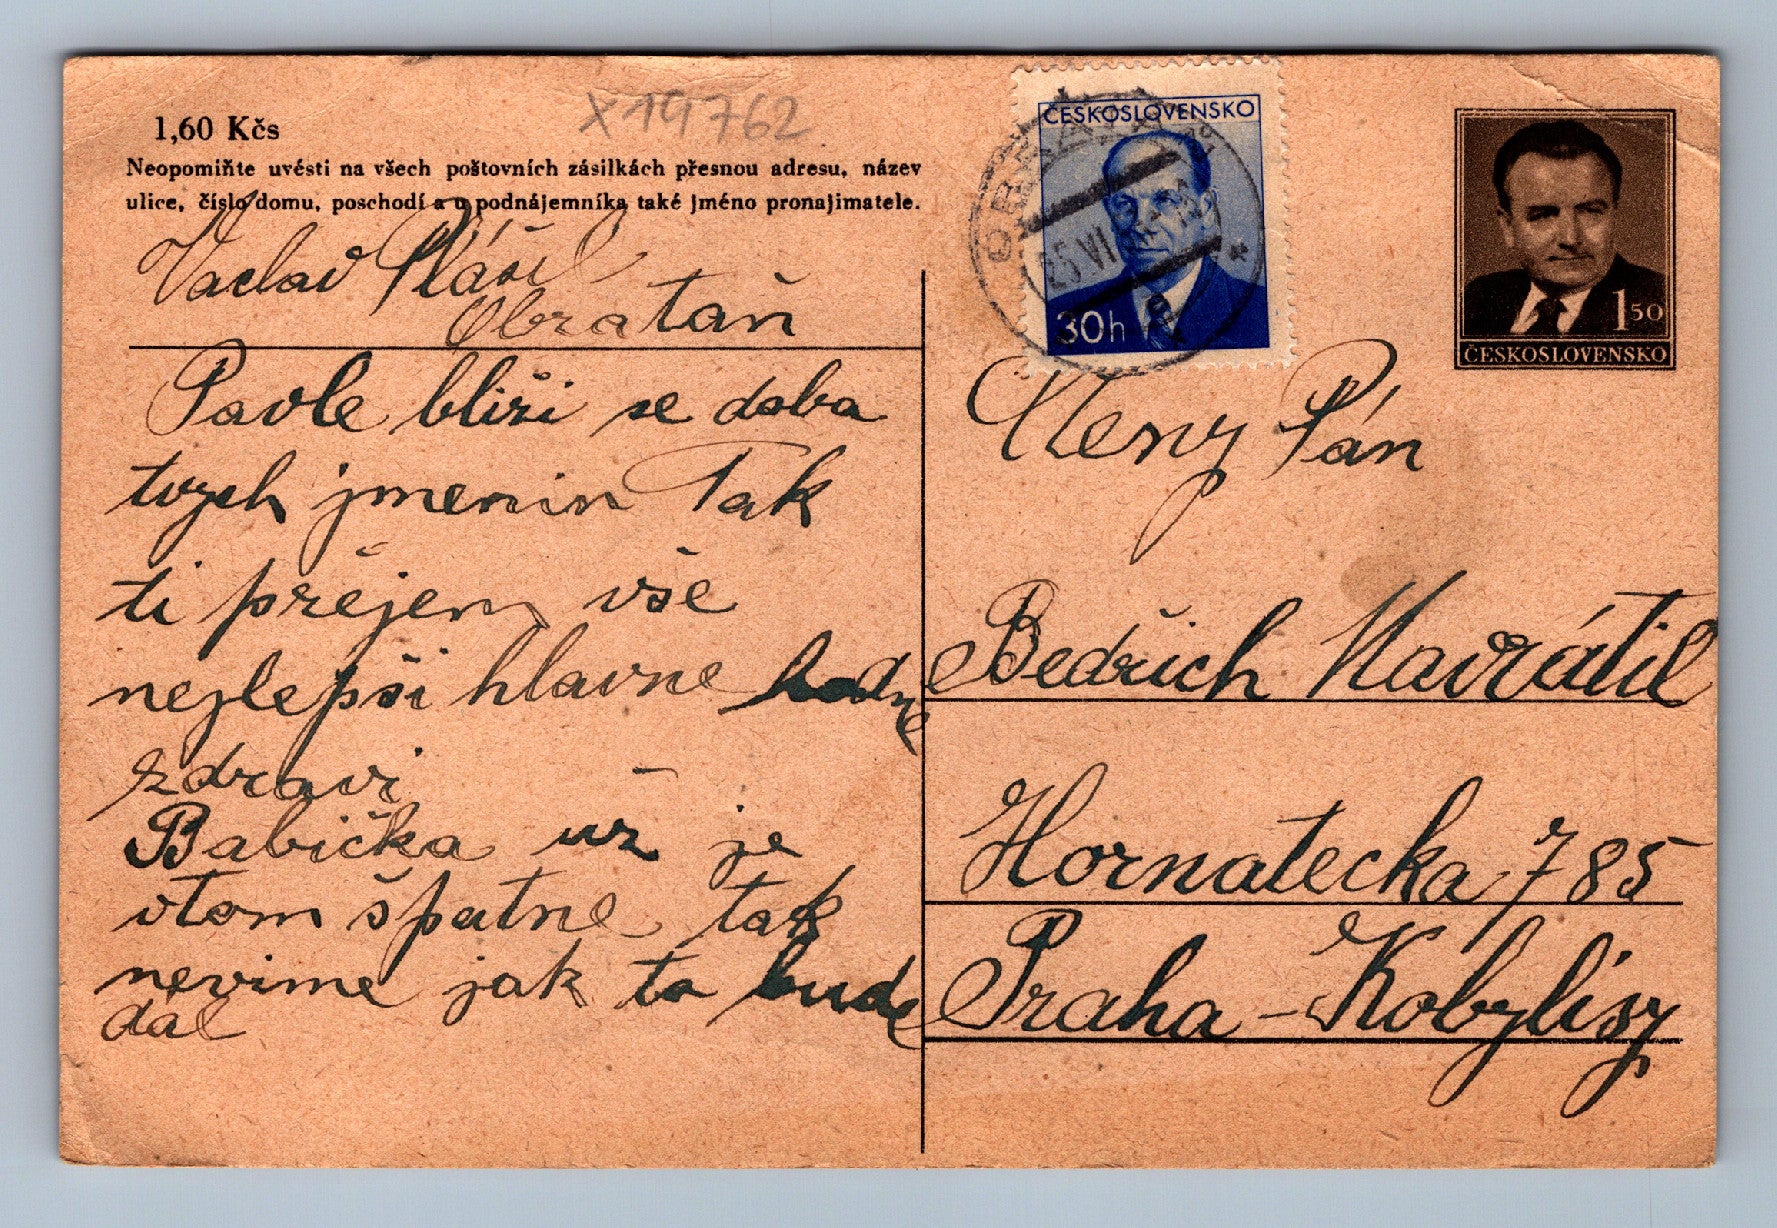 1,60 Kčs
X19762
Neopomiňte uvésti na všech poštovních zásilkách přesnou adresu, název
ulice, číslo domu, poschodí a u podnájemníka také jméno pronajimatele.
Vaclav Plášil
Obratáň
Pavle bliži se doba
tvych jmenin Tak
ti přejem vše
nejlepši hlavne hodne
zdravi
Babička už je
vtom špatne tak
nevime jak to bude
dál
ČESKOSLOVENSKO
30h
25 VI
1 50
ČESKOSLOVENSKO
Cteny Pán
Bedřich Navrátil
Hornatecka 785
Praha-Kobylisy